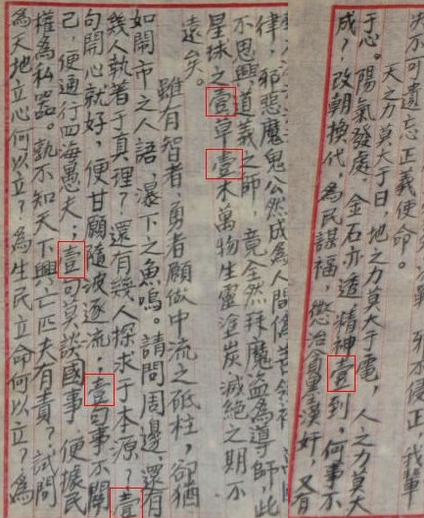 失不可遗忘正義使命。
天之力莫大于日,地之力莫大于電,人之力莫大
于心。陽氣發處,金石亦透,精神壹到,何事不
成?改朝換代,為民謀福,懲治貪贓漢奸,又有
律,邪惡魔鬼公然成為人間
不思興道義之師,竟全然拜魔盜為導師,此
星球之壹草壹木萬物生靈塗炭,滅絕之期不
遠矣。
雖有智者,勇者願做中流之砥柱,卻猶
如鬧市之人語,瀑下之魚鳴。請問周邊還有
幾人執着于真理?還有幾人探求于本源?壹
句開心就好,便甘願隨波逐流;壹句事不關
己,便通行四海愚夫;壹句莫談國事,便據民
權為私器。孰不知天下興亡匹夫有責?試問
為天地立心何以立?為生民立命何以立?為